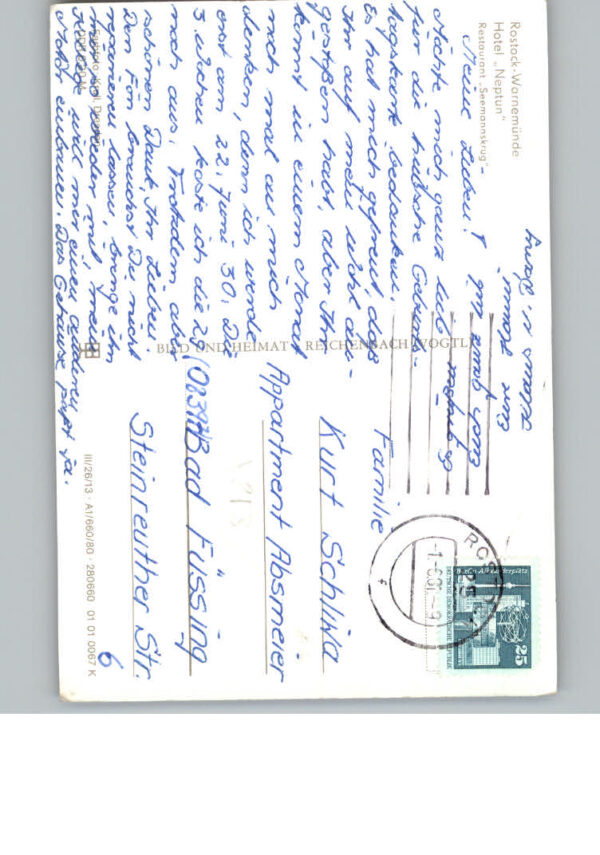 Rostock-Warnemünde
Hotel „Neptun"
Restaurant „Seemannskrug"
Meine Lieben!
Möchte mich ganz lieb
für die hübsche Geburts-
tagskarte bedanken.
Es hat mich gefreut, daß
Ihr auf mein Wohl an-
gestoßen habt, aber Ihr
könnt in einem Monat
noch mal an mich
denken, denn ich werde
erst am 22. Juni 30. Die
3 Wochen koste ich die 2
noch aus. Trotzdem aber
schönen Dank, Ihr Lieben.
Den Fön brauchst Du nicht
reparieren lassen, bringe ihn
wieder mit, mein
will mir einen anderen
Motor einbauen. Das Gehäuse paßt ja.
Euch ganz
BILD UND HEIMAT REICHENBACH (VOGTL)
III/26/13 · A1/660/80 · 280660 01 01 0067 K
Familie
Kurt Schliwa
Appartment Absmeier
Bad Füssing
Steinreuther Str.
6
25